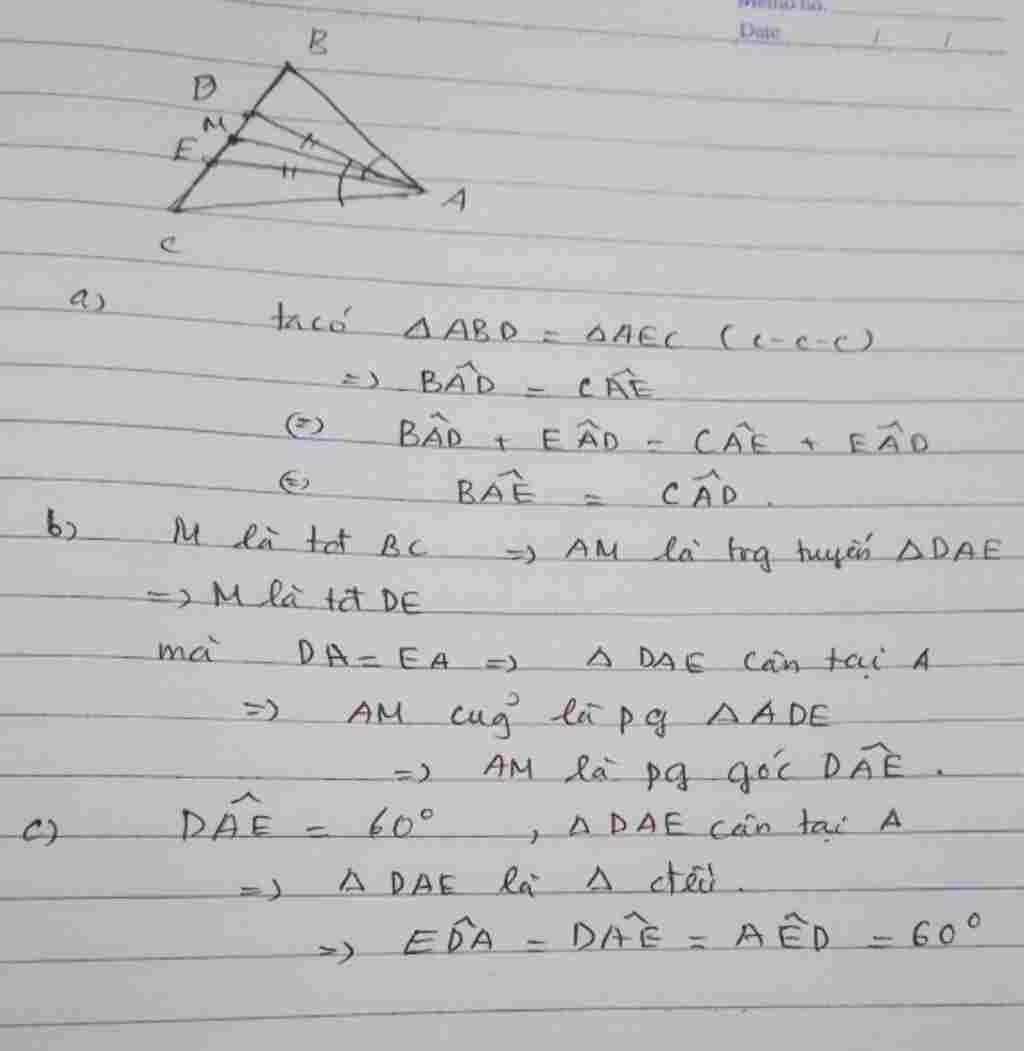 Memo no.
Date / /
B
D
M
E
A
C
a) ta có ΔABD = ΔAEC (c-c-c)
=> BÂD = CÂE
(=) BÂD + EÂD = CÂE + EÂD
(=) BÂE = CÂD.
b) M là tđ BC => AM là trg tuyến ΔDAE
=> M là tđ DE
mà DA = EA => Δ DAE cân tại A
=> AM cug̉ là pg ΔADE
=> AM là pg góc DÂE.
c) DÂE = 60°, Δ DAE cân tại A
=> Δ DAE là Δ đều.
=> ED̂A = DÂE = AÊD = 60°